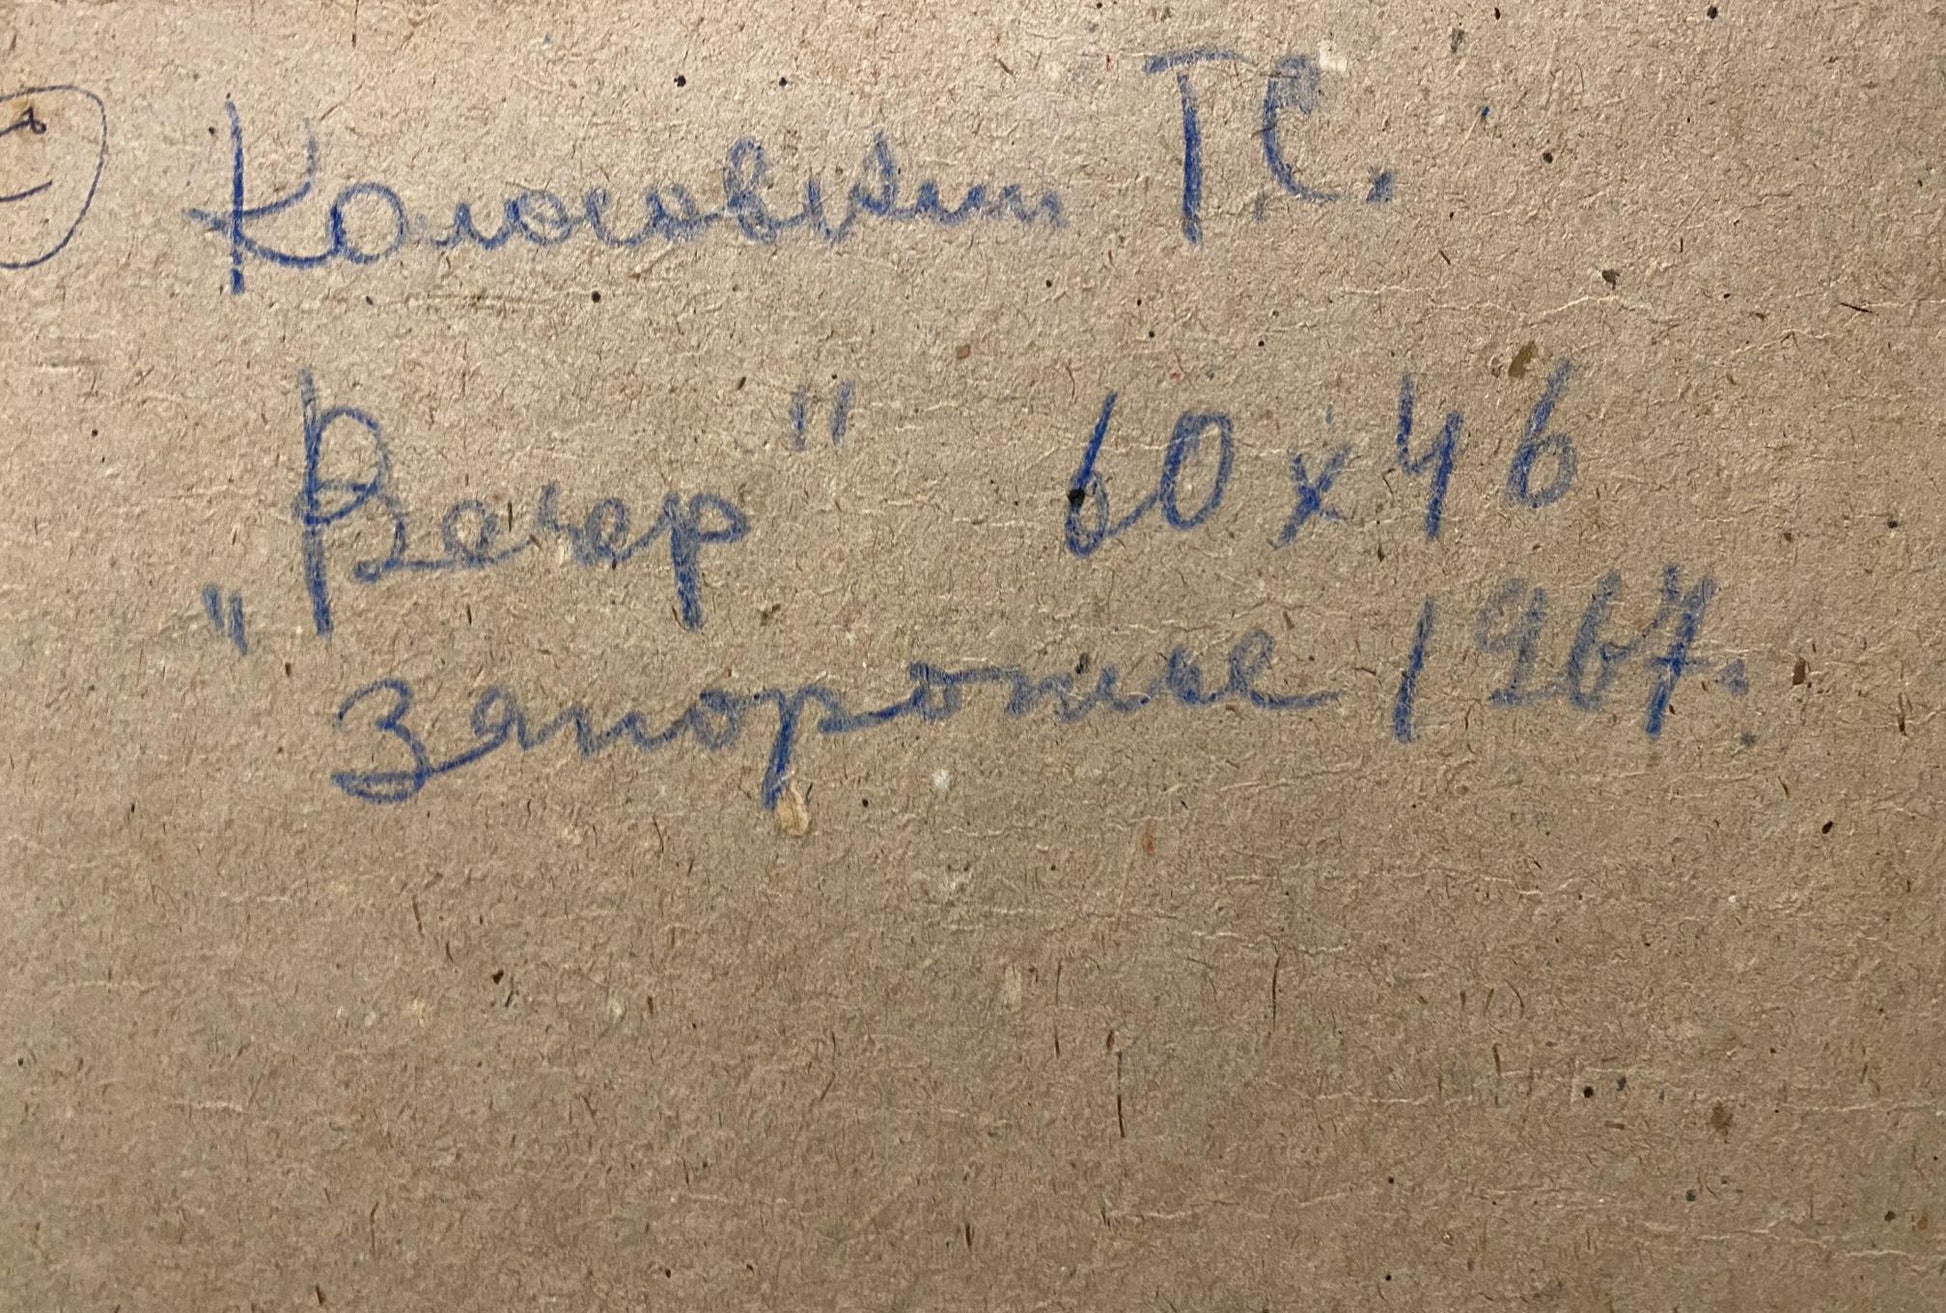 Колосовский Г.С.
„Вечер" 60х46
Запорожье 1967.